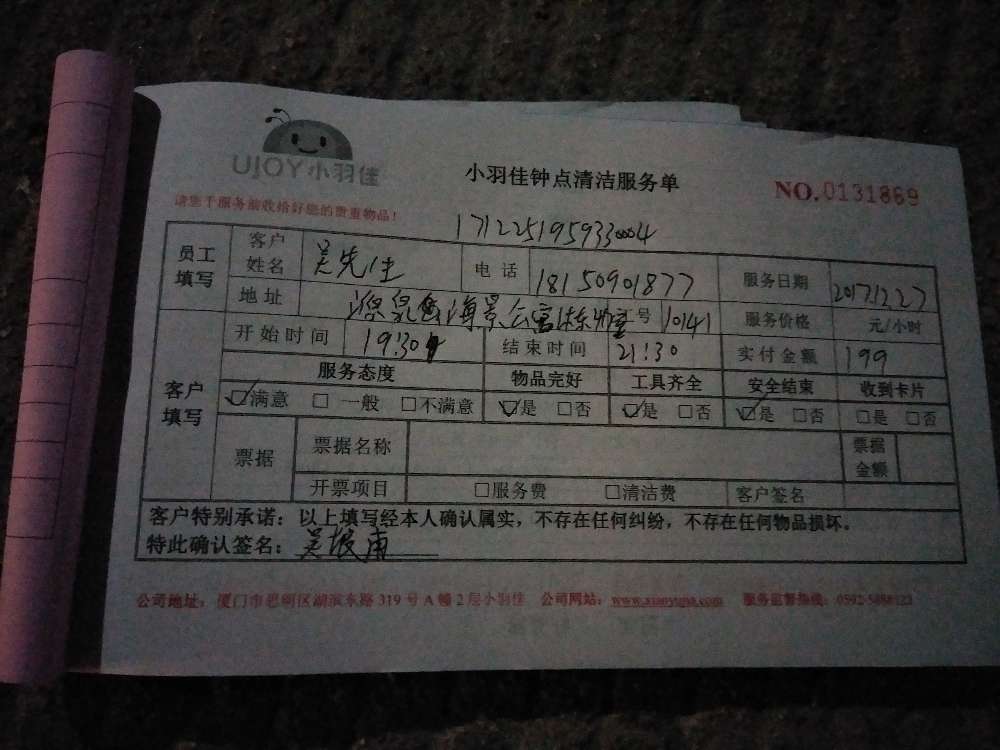 UJOY小羽佳
小羽佳钟点清洁服务单
NO.0131869
请您于服务前收拾好您的贵重物品！
1712251959330004
员工填写 客户姓名 吴先生 电话 18150901877 服务日期 2017.12.27
地址 海景公寓 号 10141 服务价格 元/小时
开始时间 19:30 结束时间 21:30 实付金额 199
客户填写 服务态度 物品完好 工具齐全 安全结束 收到卡片
☑满意 □一般 □不满意 ☑是 □否 ☑是 □否 ☑是 □否 □是 □否
票据 票据名称 票据金额
开票项目 □服务费 □清洁费 客户签名
客户特别承诺：以上填写经本人确认属实，不存在任何纠纷，不存在任何物品损坏。
特此确认签名：吴
公司地址：厦门市思明区湖滨东路 319 号 A 幢 2 层小羽佳 公司网站： 服务监督热线：